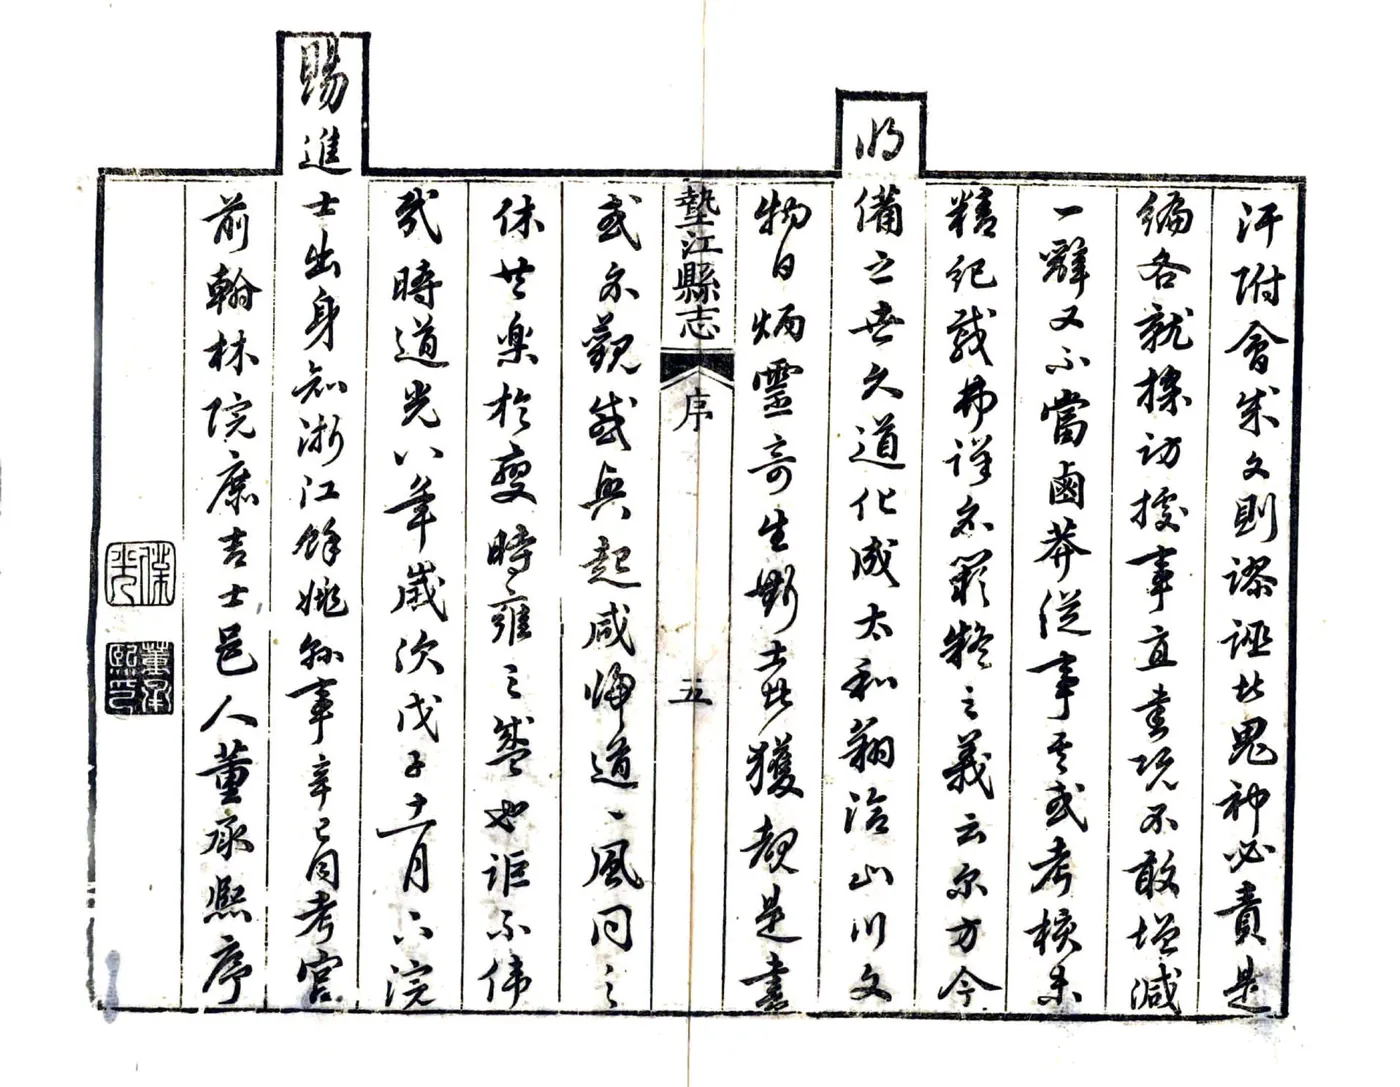 汗附會成文則謬誣此鬼神必責是
編各就採訪據事直書既不敢增減
一辭又不當鹵莽從事其或考核未
精紀載弗詳亦闕疑之義云尔方今
聖
備之世久道化成太和翔洽山川文
物日炳靈奇生斯土者獲覩是書
墊江縣志
序
五
或亦觀感興起咸歸道一風同之
休共樂於變時雍之盛也詎不偉
哉時道光八年歲次戊子十一月六浣
賜進士出身知浙江餘姚縣事辛巳同考官
前翰林院庶吉士邑人董承熙序
董承熙印